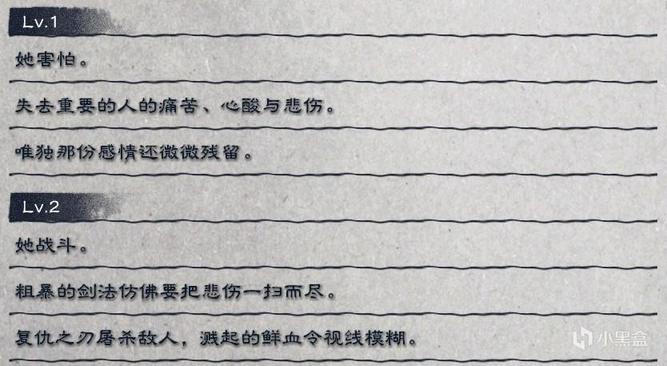 Lv.1
她害怕。
失去重要的人的痛苦、心酸与悲伤。
唯独那份感情还微微残留。
Lv.2
她战斗。
粗暴的剑法仿佛要把悲伤一扫而尽。
复仇之刃屠杀敌人，溅起的鲜血令视线模糊。
小黑盒